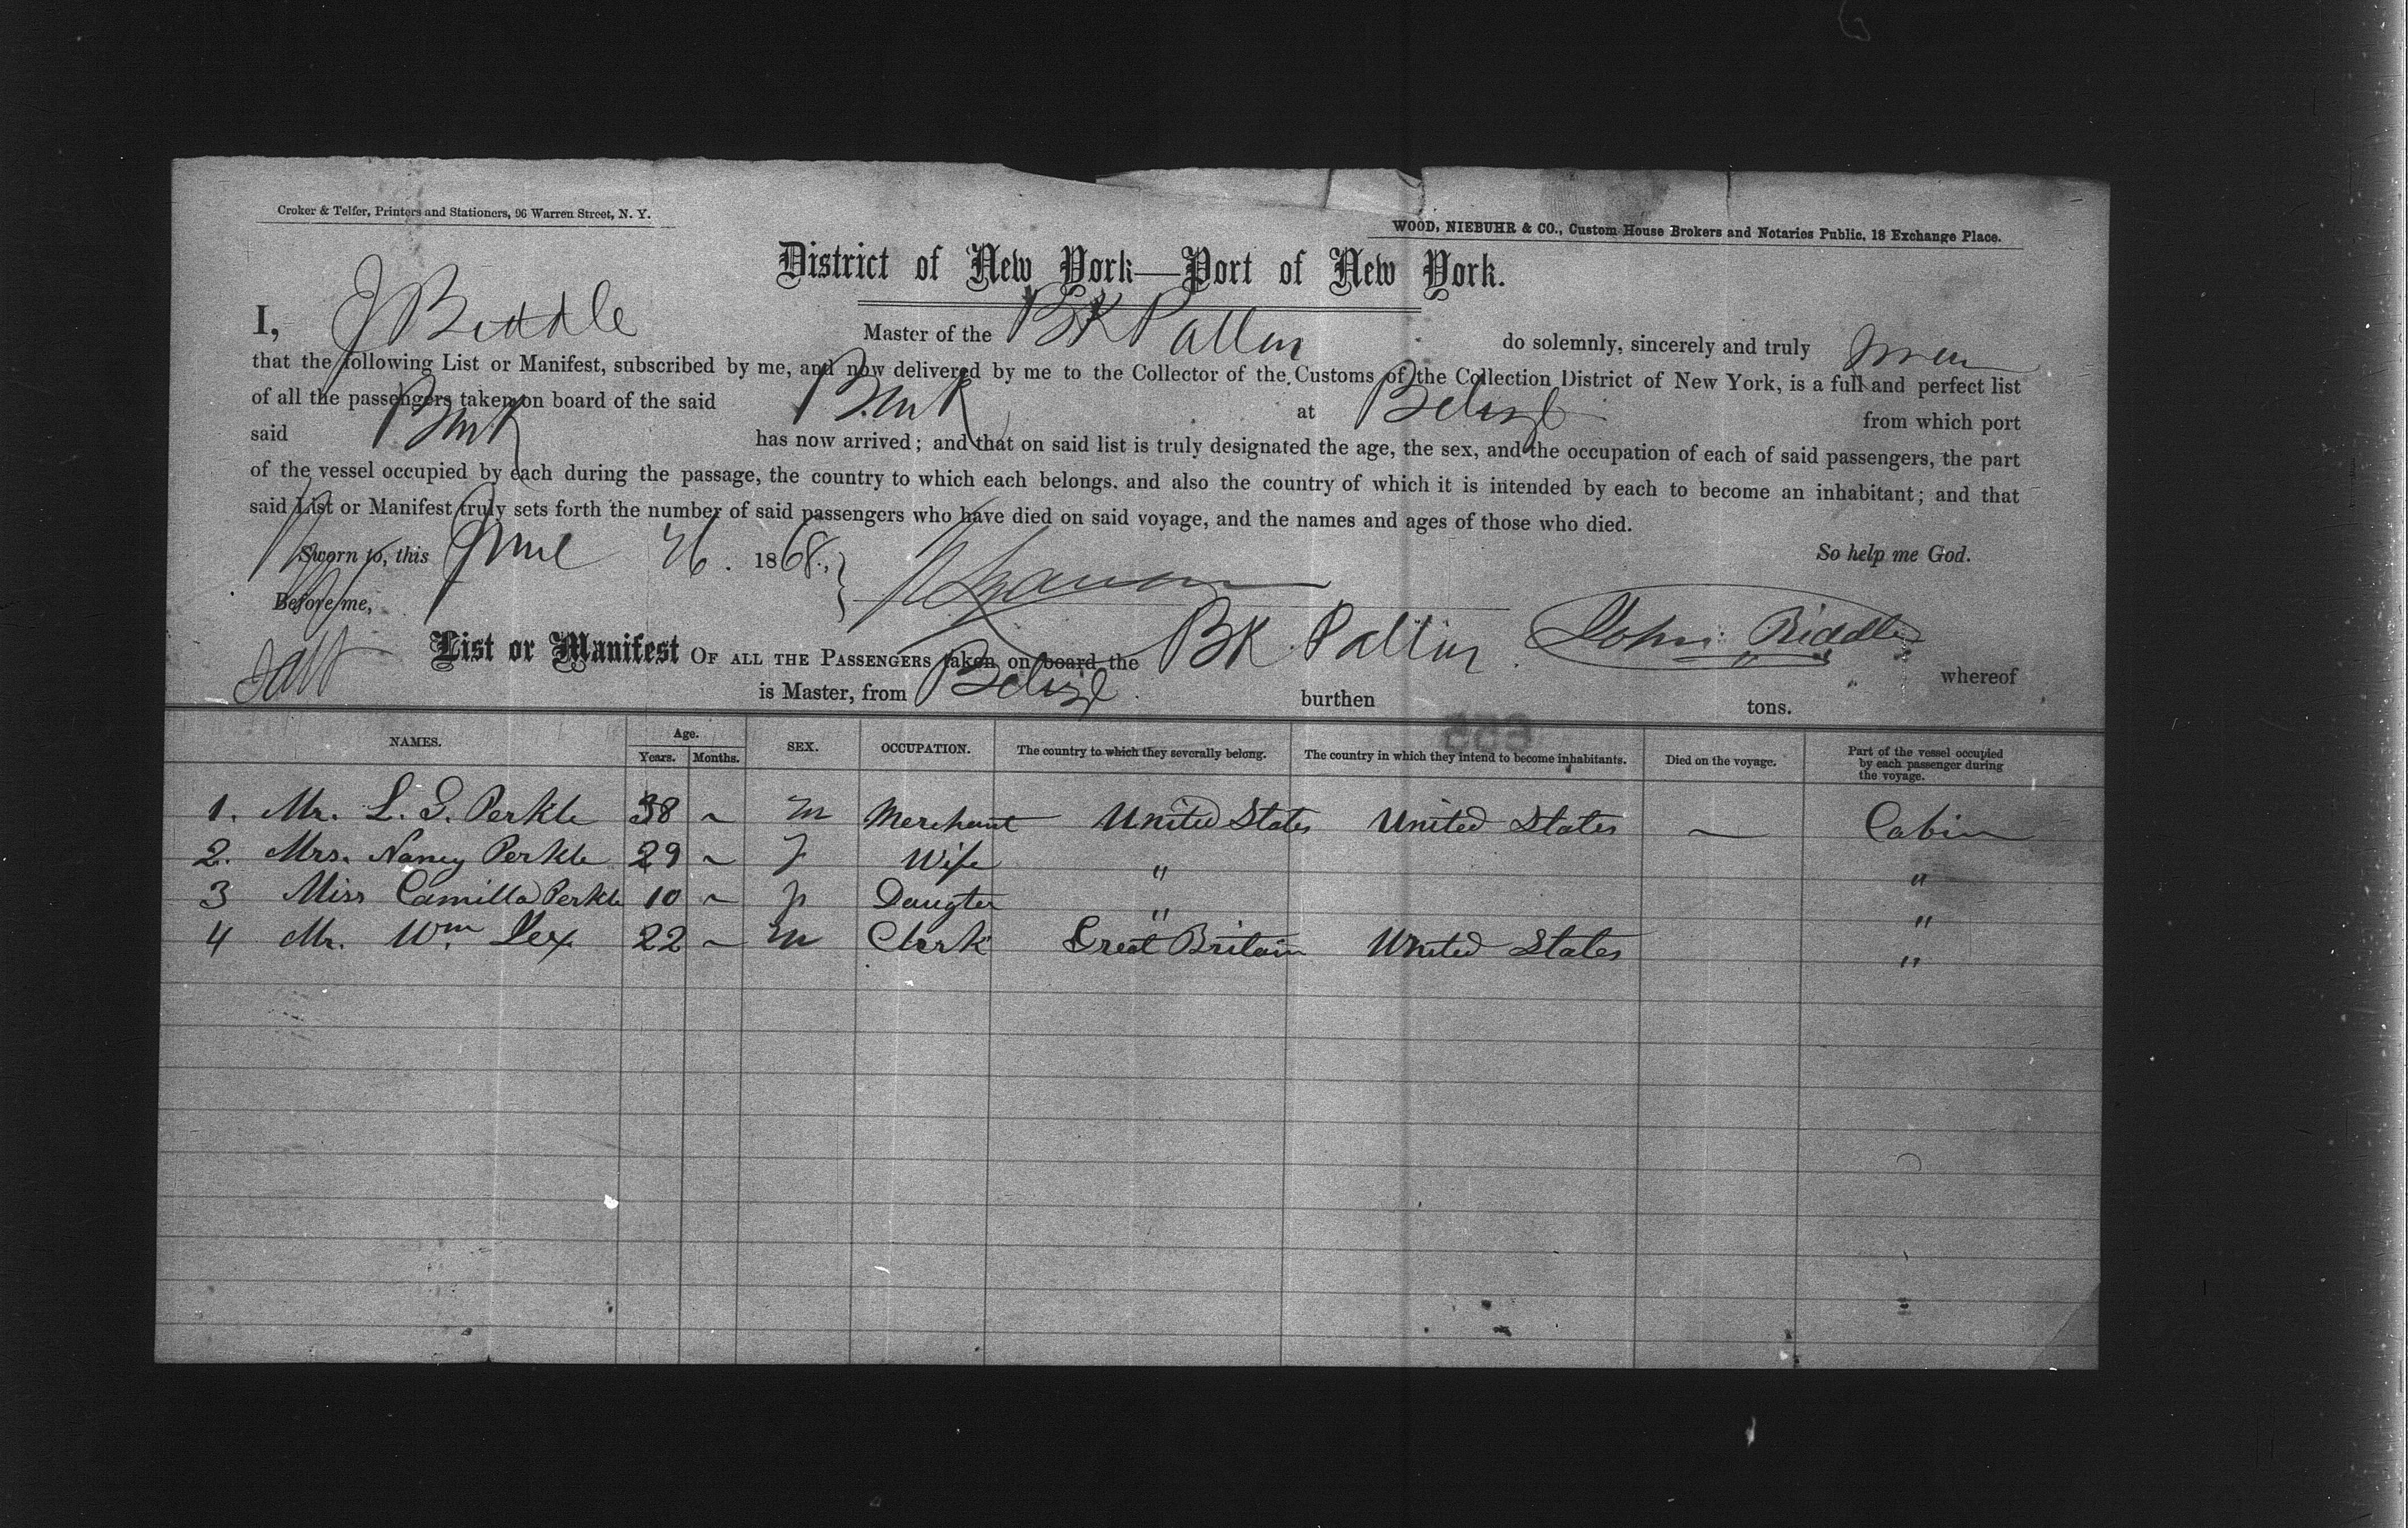 Croker & Telfer, Printers and Stationers, 96 Warren Street, N. Y.
WOOD, NIEBUHR & CO., Custom House Brokers and Notaries Public, 18 Exchange Place.
District of New York—Port of New York.
I, J Biddle Master of the BK do solemnly, sincerely and truly swear
that the following List or Manifest, subscribed by me, and now delivered by me to the Collector of the Customs of the Collection District of New York, is a full and perfect list
of all the passengers taken on board of the said Bark at Belize from which port
said Bark has now arrived; and that on said list is truly designated the age, the sex, and the occupation of each of said passengers, the part
of the vessel occupied by each during the passage, the country to which each belongs. and also the country of which it is intended by each to become an inhabitant; and that
said List or Manifest truly sets forth the number of said passengers who have died on said voyage, and the names and ages of those who died.
Sworn to, this June 26. 1868., So help me God.
Before me,
List or Manifest OF ALL THE PASSENGERS taken on board the BK John Biddle whereof
is Master, from Belize burthen tons.
NAMES. Age. Years. Months. SEX. OCCUPATION. The country to which they severally belong. The country in which they intend to become inhabitants. Died on the voyage. Part of the vessel occupied by each passenger during the voyage.
1. Mr. L. G. Perkle 38 ~ M Merchant United States United States — Cabin
2. Mrs. Nancy Perkle 29 ~ F Wife " "
3 Miss Camilla Perkle 10 ~ F Daugter " "
4 Mr. Wm. Lex 22 ~ M Clerk Great Britain United States "